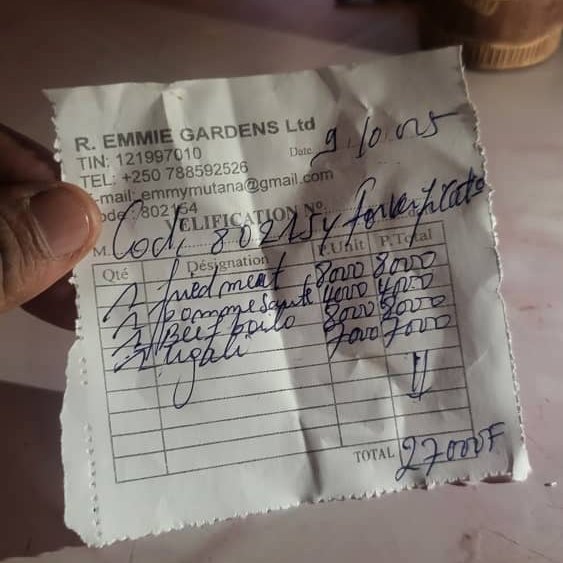 R. EMMIE GARDENS Ltd
TIN: 121997010
TEL: +250 788592526
Date 9.10.2025
e-mail: emmymutana@gmail.com
Code: 802154
VELIFICATION Nº
M. Code 802154 for verification
Qté Désignation P.Unit P.Total
1 fried meat 8000 8000
1 pomme sauté 4000 4000
1 Beef boilo 8000 8000
1 ugali 7000 7000
TOTAL 27000F